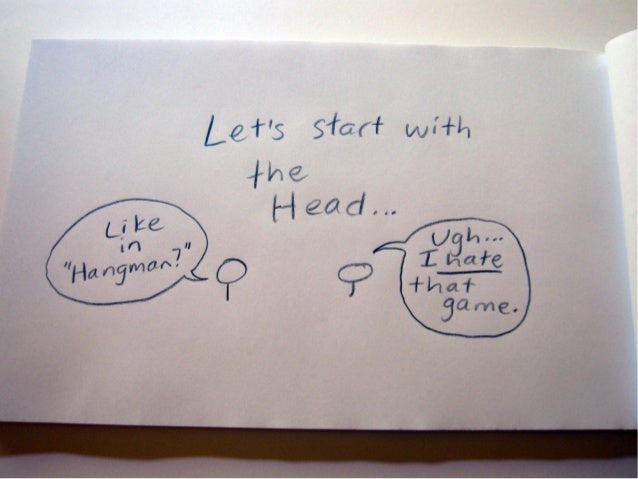 Let's start with
the
Head...
Like
in
"Hangman?"
Ugh...
I hate
that
game.